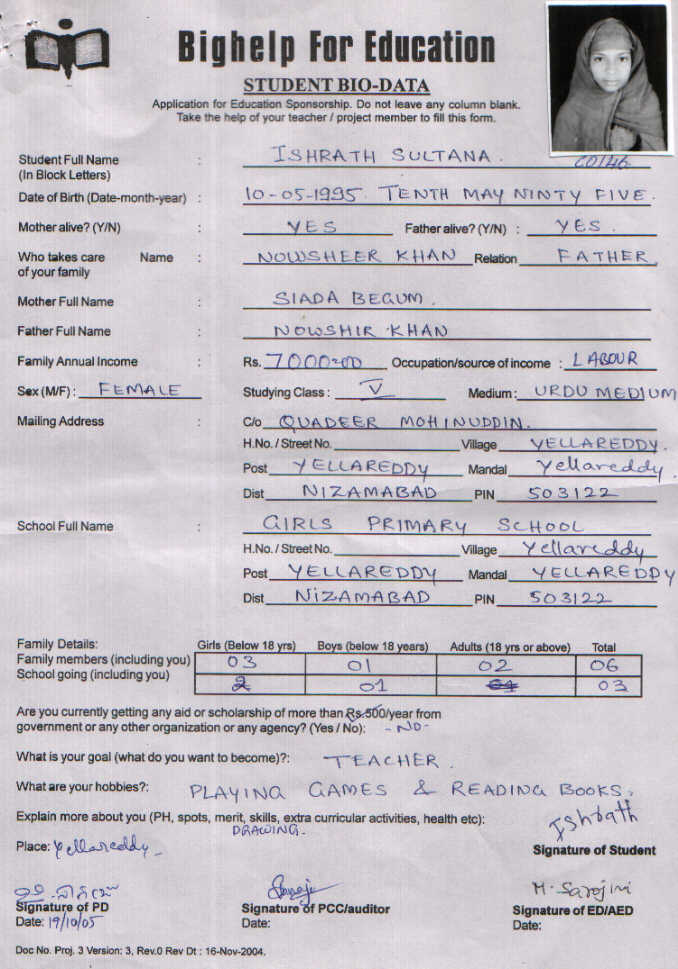 Bighelp For Education
STUDENT BIO-DATA
Application for Education Sponsorship. Do not leave any column blank.
Take the help of your teacher / project member to fill this form.
Student Full Name : ISHRATH SULTANA. C0146
(In Block Letters)
Date of Birth (Date-month-year) : 10-05-1995. TENTH MAY NINTY FIVE.
Mother alive? (Y/N) : YES Father alive? (Y/N) : YES.
Who takes care Name : NOWSHEER KHAN Relation FATHER.
of your family
Mother Full Name : SIADA BEGUM.
Father Full Name : NOWSHIR KHAN
Family Annual Income : Rs. 7000=00 Occupation/source of income : LABOUR
Sex (M/F) : FEMALE Studying Class : V Medium : URDU MEDIUM
Mailing Address : C/o QUADEER MOHINUDDIN.
H.No. / Street No. Village YELLAREDDY.
Post YELLAREDDY Mandal Yellareddy.
Dist NIZAMABAD PIN 503122
School Full Name : GIRLS PRIMARY SCHOOL
H.No. / Street No. Village Yellareddy
Post YELLAREDDY Mandal YELLAREDDY
Dist NIZAMABAD PIN 503122
Family Details: Girls (Below 18 yrs) Boys (below 18 years) Adults (18 yrs or above) Total
Family members (including you) 03 01 02 06
School going (including you) 2 01 03
Are you currently getting any aid or scholarship of more than Rs.500/year from
government or any other organization or any agency? (Yes / No): -NO-
What is your goal (what do you want to become)?: TEACHER.
What are your hobbies?: PLAYING GAMES & READING BOOKS.
Explain more about you (PH, spots, merit, skills, extra curricular activities, health etc):
DRAWING.
Ishrath
Place: Yellareddy
Signature of Student
M. Sarojini
Signature of PD Signature of PCC/auditor Signature of ED/AED
Date: 19/10/05 Date: Date:
Doc No. Proj. 3 Version: 3, Rev.0 Rev Dt : 16-Nov-2004.